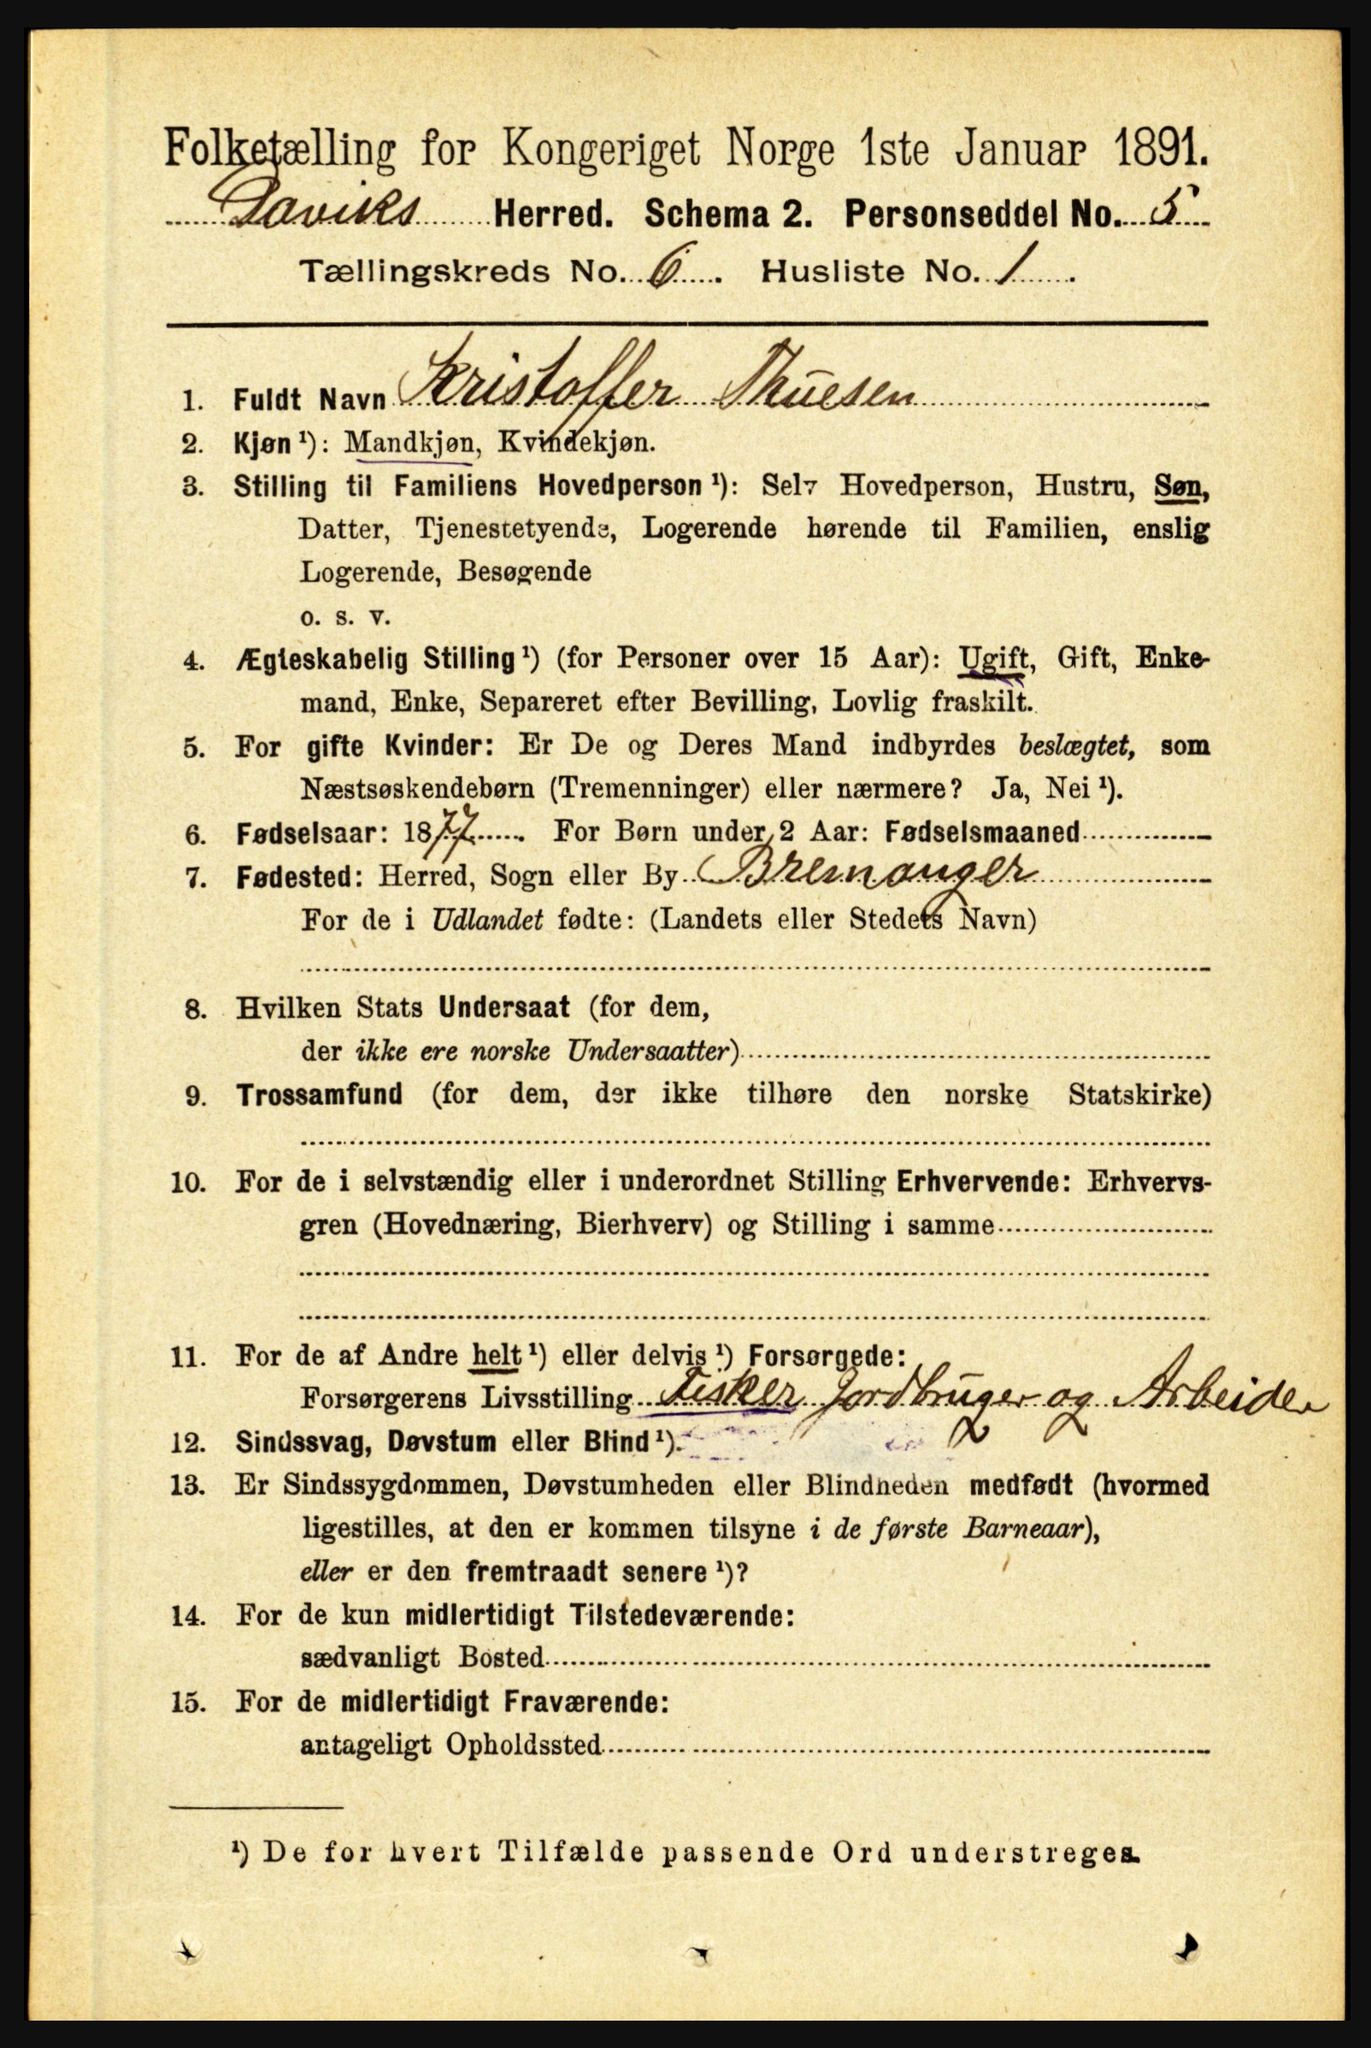 Folketælling for Kongeriget Norge 1ste Januar 1891.
Daviks Herred. Schema 2. Personseddel No. 5
Tællingskreds No. 6. Husliste No. 1.
1. Fuldt Navn Kristoffer Thuesen
2. Kjøn ¹): Mandkjøn, Kvindekjøn.
3. Stilling til Familiens Hovedperson ¹): Selv Hovedperson, Hustru, Søn,
Datter, Tjenestetyende, Logerende hørende til Familien, enslig
Logerende, Besøgende
o. s. v.
4. Ægteskabelig Stilling ¹) (for Personer over 15 Aar): Ugift, Gift, Enke-
mand, Enke, Separeret efter Bevilling, Lovlig fraskilt.
5. For gifte Kvinder: Er De og Deres Mand indbyrdes beslægtet, som
Næstsøskendebørn (Tremenninger) eller nærmere? Ja, Nei ¹).
6. Fødselsaar: 1877. For Børn under 2 Aar: Fødselsmaaned
7. Fødested: Herred, Sogn eller By Bremanger
For de i Udlandet fødte: (Landets eller Stedets Navn)
8. Hvilken Stats Undersaat (for dem,
der ikke ere norske Undersaatter)
9. Trossamfund (for dem, der ikke tilhøre den norske Statskirke)
10. For de i selvstændig eller i underordnet Stilling Erhvervende: Erhvervs-
gren (Hovednæring, Bierhverv) og Stilling i samme
11. For de af Andre helt ¹) eller delvis ¹) Forsørgede:
Forsørgerens Livsstilling Fisker Jordbruger og Arbeider
12. Sindssvag, Døvstum eller Blind ¹).
13. Er Sindssygdommen, Døvstumheden eller Blindheden medfødt (hvormed
ligestilles, at den er kommen tilsyne i de første Barneaar),
eller er den fremtraadt senere ¹)?
14. For de kun midlertidigt Tilstedeværende:
sædvanligt Bosted
15. For de midlertidigt Fraværende:
antageligt Opholdssted
¹) De for hvert Tilfælde passende Ord understreges.